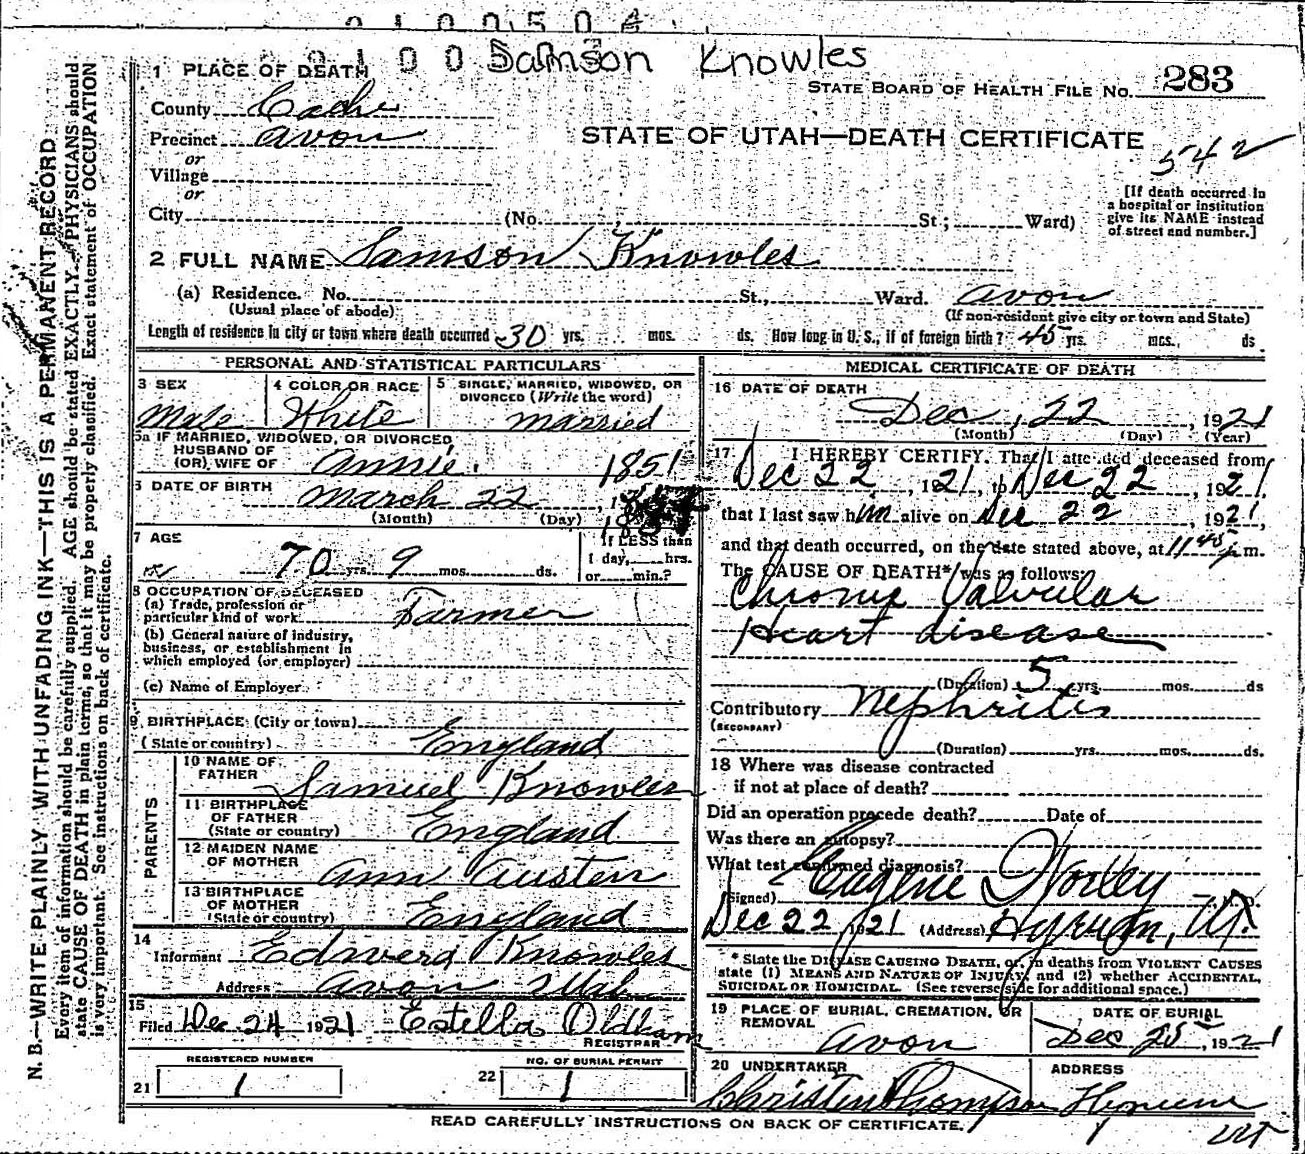 Samson Knowles
1 PLACE OF DEATH
STATE BOARD OF HEALTH FILE NO. 283
County Cache
Precinct Avon
STATE OF UTAH—DEATH CERTIFICATE
542
or
Village
or
City (No. St; Ward)
[If death occurred in
a hospital or institution
give its NAME instead
of street and number.]
2 FULL NAME Samson Knowles
(a) Residence. No. St., Ward. Avon
(Usual place of abode) (If non-resident give city or town and State)
Length of residence in city or town where death occurred 30 yrs. mos. ds. How long in U. S., if of foreign birth? 45 yrs. mos., ds.
PERSONAL AND STATISTICAL PARTICULARS
3 SEX 4 COLOR OR RACE 5 SINGLE, MARRIED, WIDOWED, OR
DIVORCED (Write the word)
Male White married
5a IF MARRIED, WIDOWED, OR DIVORCED
HUSBAND OF
(OR) WIFE OF Annie.
1851
6 DATE OF BIRTH March 22
(Month) (Day)
7 AGE 70 yrs. 9 mos. ds.
If LESS than
1 day, hrs.
or min.?
8 OCCUPATION OF DECEASED
(a) Trade, profession or
particular kind of work Farmer
(b) General nature of industry,
business, or establishment in
which employed (or employer)
(c) Name of Employer
9 BIRTHPLACE (City or town)
(State or country) England
PARENTS
10 NAME OF
FATHER Samuel Knowles
11 BIRTHPLACE
OF FATHER
(State or country) England
12 MAIDEN NAME
OF MOTHER Ann Austen
13 BIRTHPLACE
OF MOTHER
(State or country) England
14
Informant Edward Knowles
Address Avon Utah
15
Filed Dec 24 1921 Estella Oldham
REGISTRAR
REGISTERED NUMBER NO. OF BURIAL PERMIT
21 1 22 1
MEDICAL CERTIFICATE OF DEATH
16 DATE OF DEATH
Dec, 22, 1921
(Month) (Day) (Year)
17 I HEREBY CERTIFY. That I attended deceased from
Dec 22, 1921, to Dec 22, 1921,
that I last saw him alive on Dec 22, 1921,
and that death occurred, on the date stated above, at 11 45 p m.
The CAUSE OF DEATH* was as follows:
Chronic Valvular
Heart disease
(Duration) 5 yrs. mos. ds
Contributory Nephritis
(SECONDARY)
(Duration) yrs. mos. ds.
18 Where was disease contracted
if not at place of death?
Did an operation precede death? Date of
Was there an autopsy?
What test confirmed diagnosis?
(Signed) Eugene Worley
Dec 22 1921 (Address) Hyrum, Ut.
* State the DISEASE CAUSING DEATH, or, in deaths from VIOLENT CAUSES
state (1) MEANS AND NATURE OF INJURY, and (2) whether ACCIDENTAL,
SUICIDAL OR HOMICIDAL. (See reverse side for additional space.)
19 PLACE OF BURIAL, CREMATION, OR
REMOVAL Avon
DATE OF BURIAL
Dec 25, 1921
20 UNDERTAKER ADDRESS
Christen Thompson Hyrum
Ut
READ CAREFULLY INSTRUCTIONS ON BACK OF CERTIFICATE.
N. B.—WRITE PLAINLY WITH UNFADING INK—THIS IS A PERMANENT RECORD
Every item of information should be carefully supplied. AGE should be stated EXACTLY. PHYSICIANS should
state CAUSE OF DEATH in plain terms, so that it may be properly classified. Exact statement of OCCUPATION
is very important. See instructions on back of certificate.